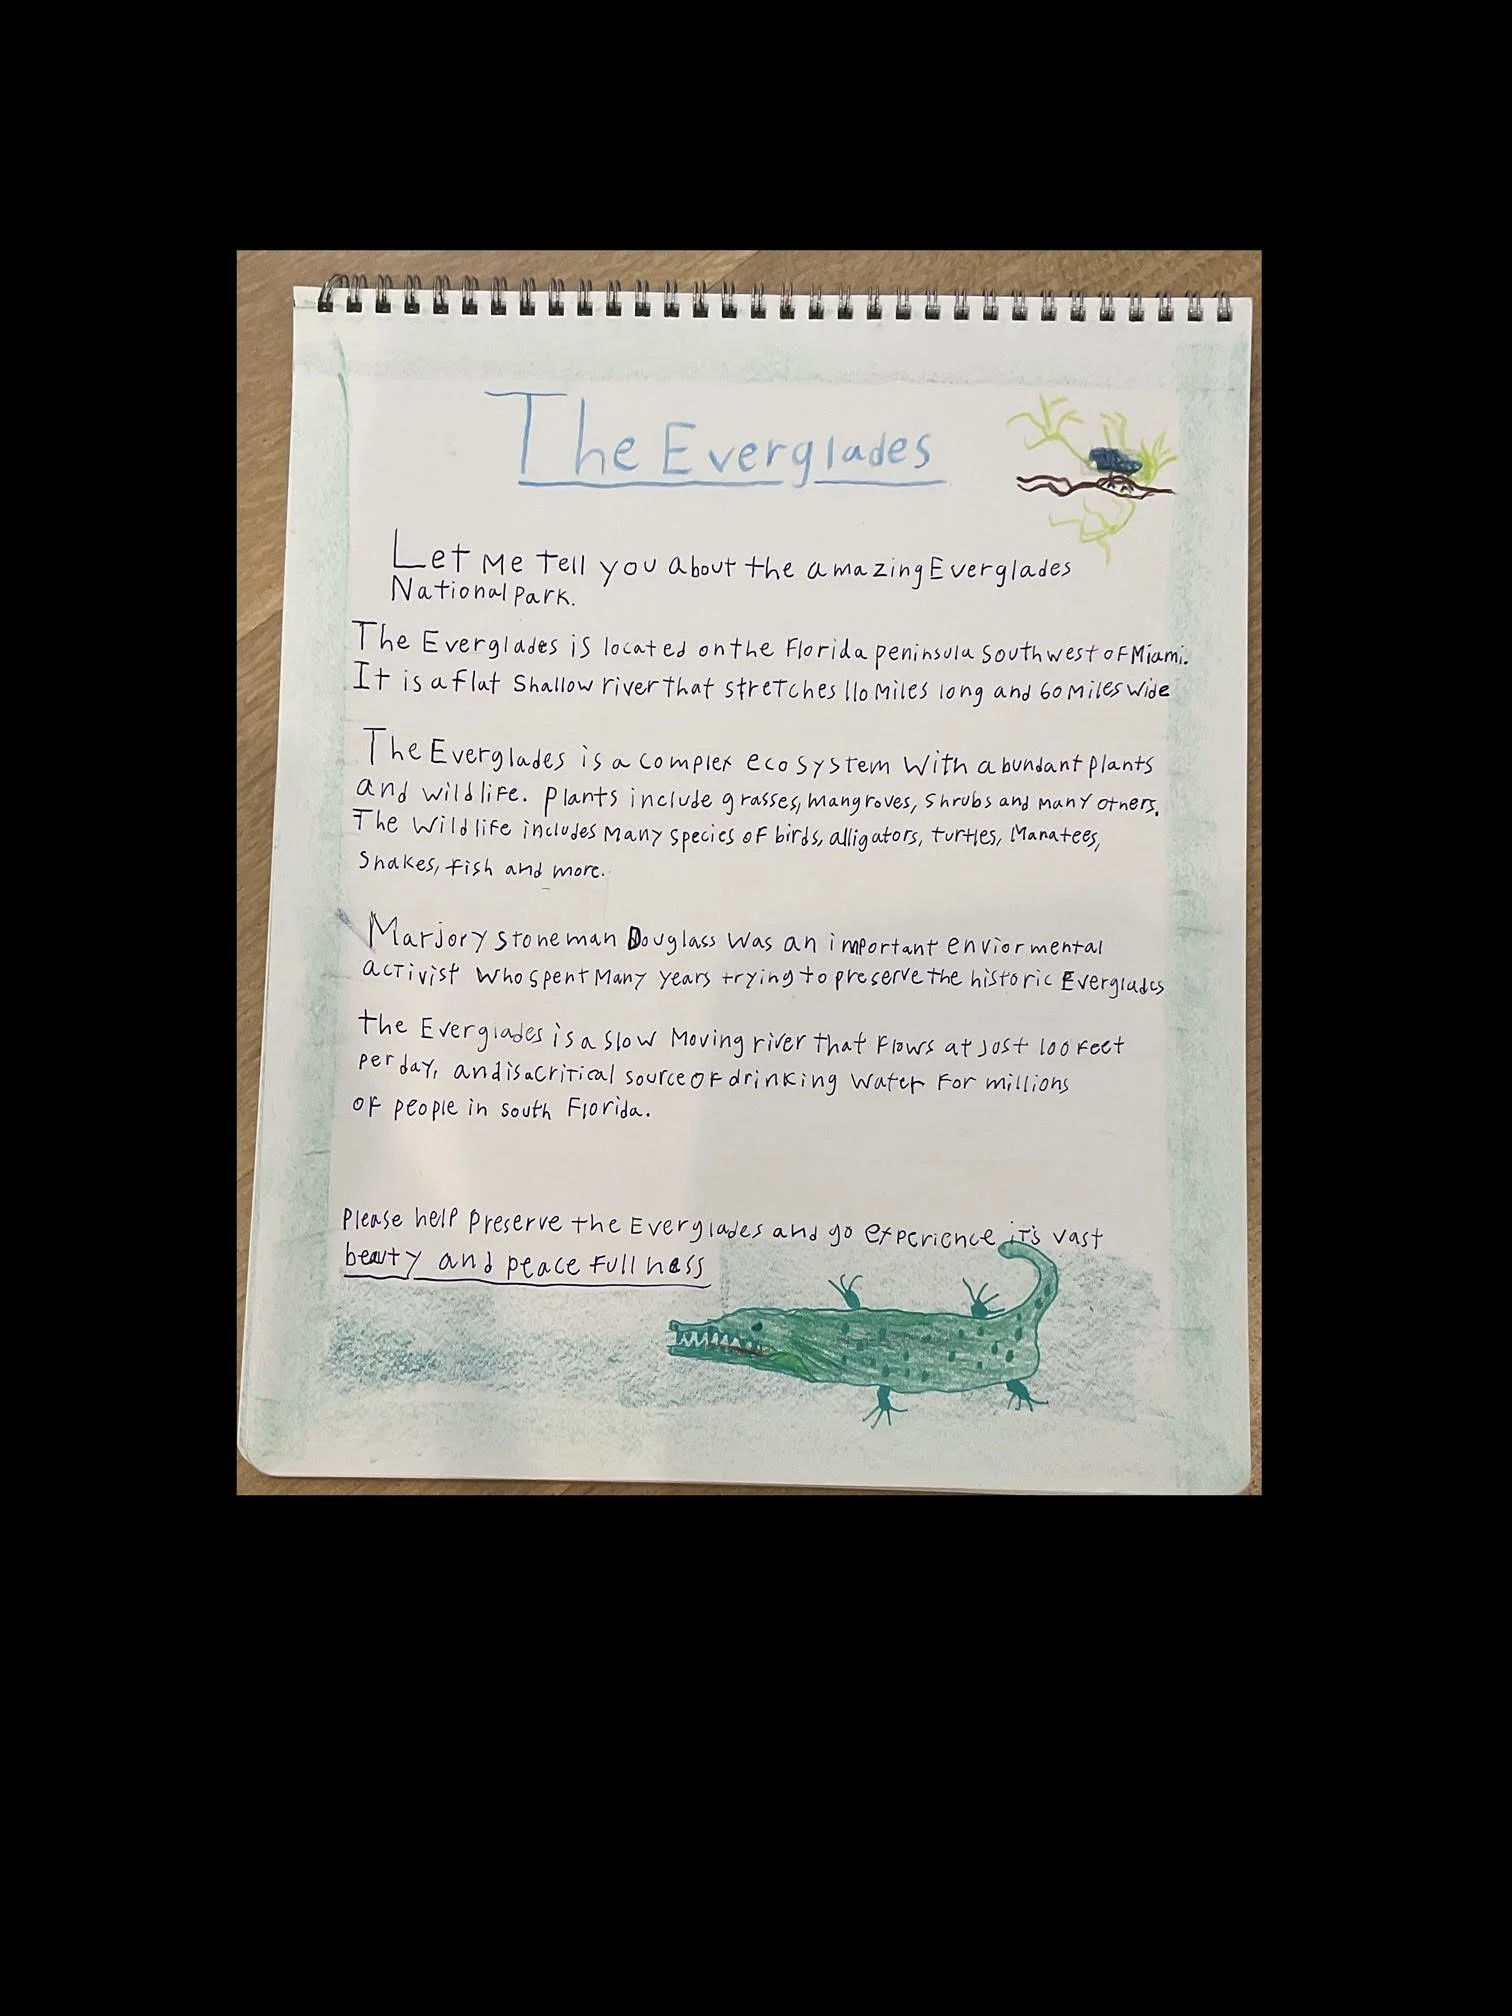 The Everglades
Let Me Tell you about the amazing Everglades
National Park.
The Everglades is located on the Florida peninsula southwest of Miami.
It is a flat shallow river that stretches 110 Miles long and 60 Miles wide
The Everglades is a complex ecosystem with abundant plants
and wildlife. Plants include grasses, mangroves, shrubs and many others.
The wildlife includes many species of birds, alligators, turtles, Manatees,
Snakes, fish and more.
Marjory Stoneman Douglass was an important enviormental
activist who spent Many years trying to preserve the historic Everglades
the Everglades is a slow Moving river that flows at just 100 feet
per day, and is a critical source of drinking water for millions
of people in south Florida.
Please help preserve the Everglades and go experience it's vast
beauty and peacefullness